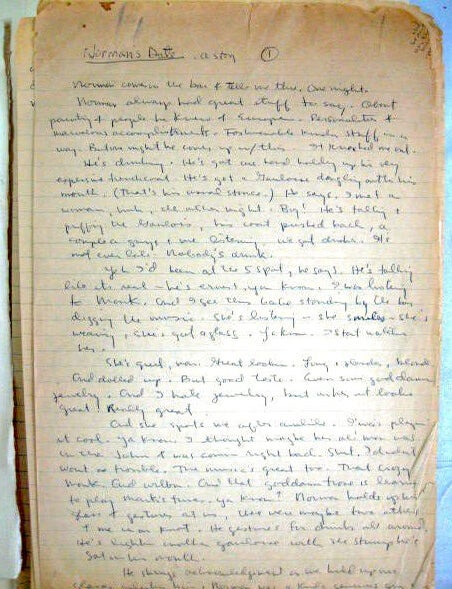 Norman's Date . a story 1
Norman comes in the bar & tells me this. One night.
Norman always had great stuff to say. About
parties & people he knew & Europe. Personalities &
marvelous accomplishments. Fashionable kinda stuff in a
way. But one night he comes up w/ this It knocked me out.
He's drinking. He's got one hand holding up his very
expensive trenchcoat. He's got a Gauloise dangling outta his
mouth. (That's his usual stance.) He says, I met a
woman, the other night. Boy! He's talking &
puffing the Gauloise, his coat pushed back, a
couple a guys & me listening, we got drinks. It's
not even late. Nobody's drunk.
Yeh I'd been at the 5 Spot, he says. He's talking
like it's real - he's serious, ya know. I was listening
to Monk. And I see this babe standing by the bar
digging the music. She's listening - she smokes - she's
weaving, she's got a glass. Ya know. I start watchin
her.
She's great, man. Great lookin. Long, slender, blonde
And dolled up. But good taste. Even some goddamn
jewelry. And I hate jewelry, but on her it looks
great. Really great.
And she spots me after awhile. I was playin
it cool. Ya know. I thought maybe her ol man was
in the John & was comin right back. Shit. I didn't
want no trouble. The music's great too. That crazy
Monk. And Wilbur. And that goddam Trane is learning
to play Monk's tunes, ya know? Norman holds up his
glass & gestures at us. There were maybe two others
& me in a knot. He gestures for drinks all around.
He's lightin another gauloise with the stump he's
Sat in his mouth.
He shrugs acknowledgement as we hold up our